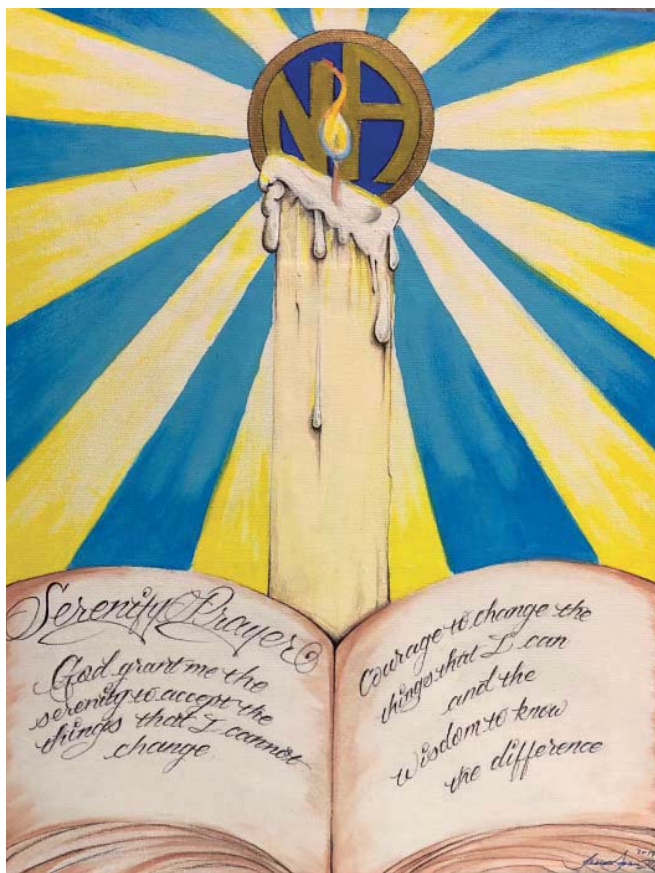 NA
Serenity Prayer
God grant me the
serenity to accept the
things that I cannot
change
Courage to change the
things that I can
and the
wisdom to know
the difference